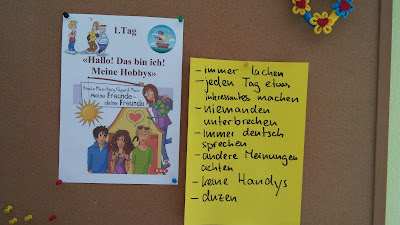 1.Tag
«Hallo! Das bin ich!
Meine Hobbys»
Meine Freunde -
deine Freunde
- immer lachen
- jeden Tag etwas
interessantes machen
- niemanden
unterbrechen
- immer deutsch
sprechen
- andere Meinungen
achten
- keine Handys
- duzen